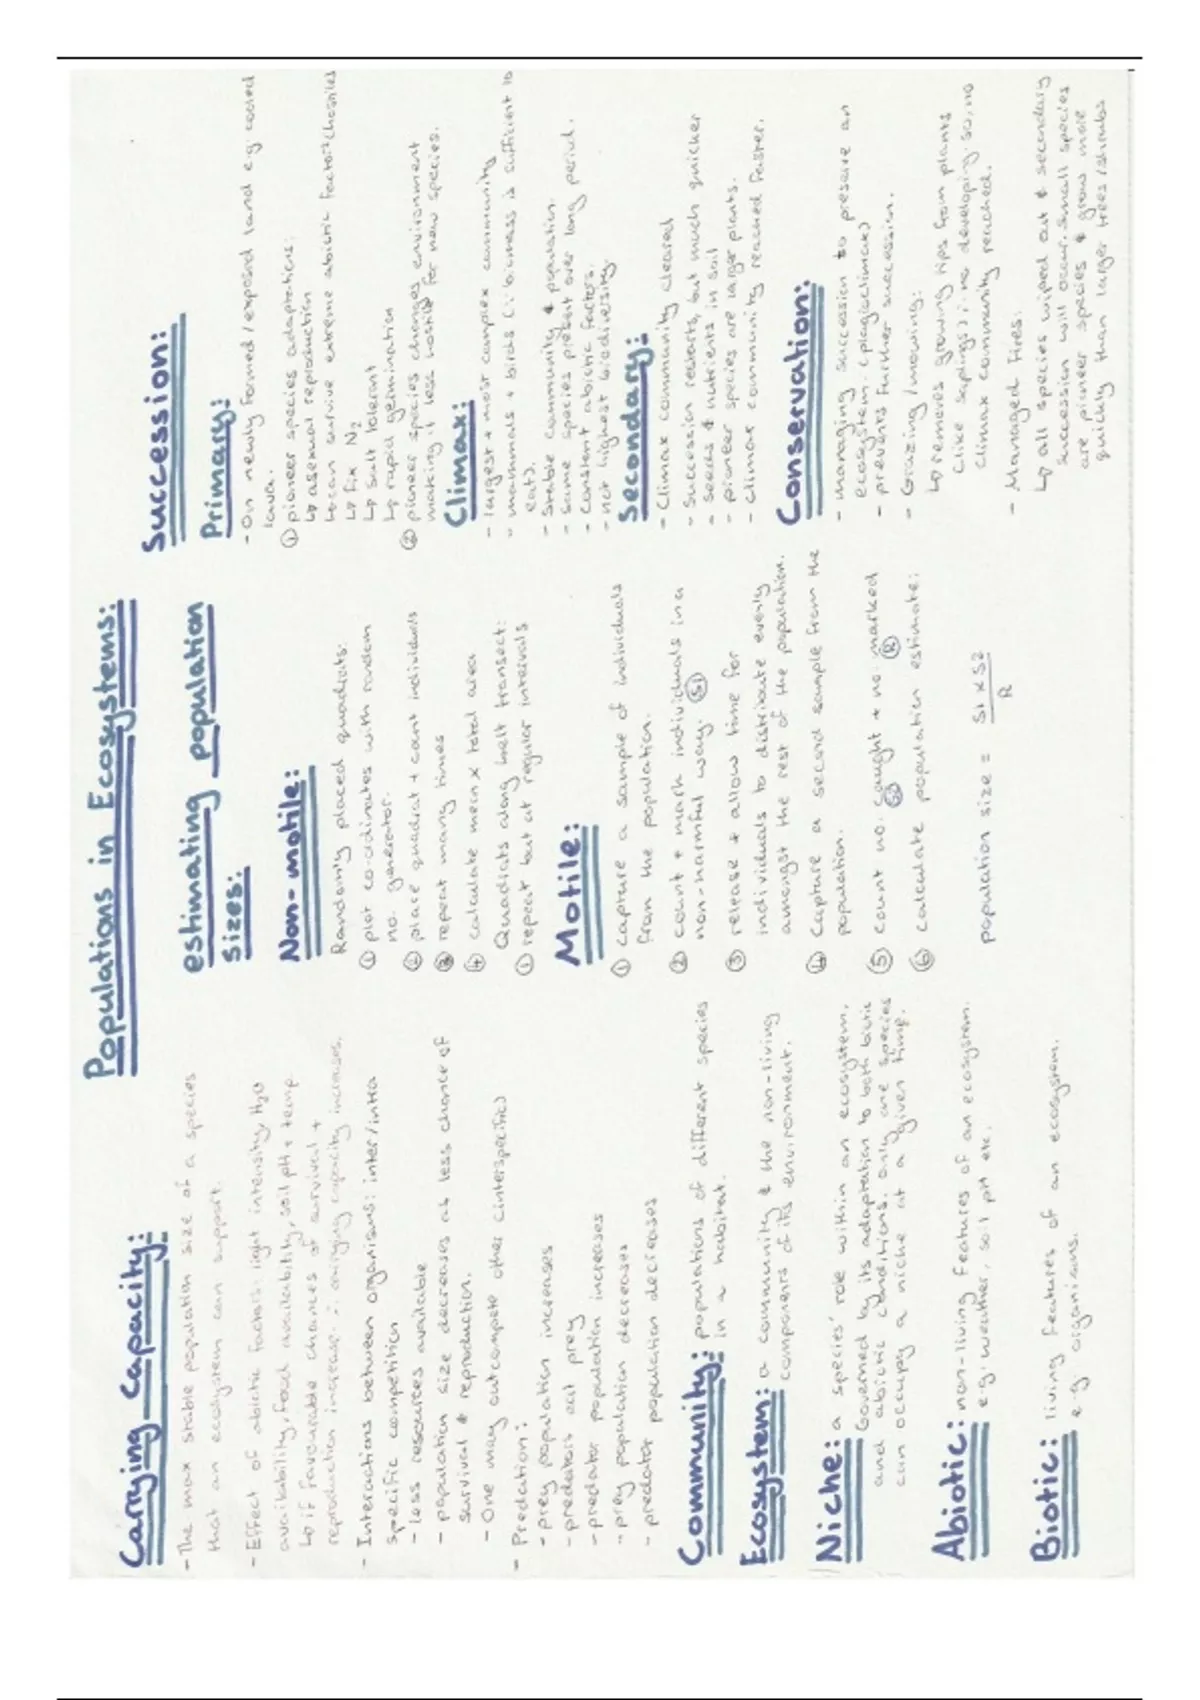 Populations in Ecosystems:
Carrying Capacity:
- The max stable population size of a species
that an ecosystem can support.
- Effect of abiotic factors: light intensity, H₂O
availability, food availability, soil pH + temp.
↳ if favourable chances of survival +
reproduction increase ∴ carrying capacity increases.
- Interactions between organisms: inter/intra
specific competition
- less resources available
- population size decreases as less chance of
survival & reproduction.
- One may outcompete other (interspecific)
- Predation:
- prey population increases
- predators eat prey
- predator population increases
- prey population decreases
- predator population decreases
Community: populations of different species
in a habitat.
Ecosystem: a community & the non-living
components of its environment.
Niche: a species' role within an ecosystem.
Governed by its adaptation to both biotic
and abiotic conditions. only one species
can occupy a niche at a given time.
Abiotic: non-living features of an ecosystem.
e.g. weather, soil pH etc.
Biotic: living features of an ecosystem.
e.g. organisms.
estimating population
sizes:
Non-motile:
Randomly placed quadrats:
① plot co-ordinates with random
no. generator.
② place quadrat + count individuals
③ repeat many times
④ calculate mean x total area
Quadrats along belt transect:
① repeat but at regular intervals
Motile:
① capture a sample of individuals
from the population.
② count + mark individuals in a
non-harmful way. (S1)
③ release + allow time for
individuals to distribute evenly
amongst the rest of the population.
④ Capture a second sample from the
population.
⑤ count no. caught + no. marked
(S2) (R)
⑥ calculate population estimate:
population size = S1 x S2
R
Succession:
Primary:
- On newly formed/exposed land e.g. cooled
lava.
① pioneer species adaptations:
↳ asexual reproduction
↳ can survive extreme abiotic factors (hostile)
↳ fix N₂
↳ salt tolerant
↳ rapid germination
② pioneer species changes environment
making it less hostile for new species.
Climax:
- largest + most complex community
- mammals + birds (∴ biomass is sufficient to
eat).
- Stable community & population.
- Same species present over long period.
- Constant abiotic factors.
- not highest biodiversity.
Secondary:
- Climax community cleared
- Succession restarts, but much quicker
- seeds & nutrients in soil
- pioneer species are larger plants.
- Climax community reached faster.
Conservation:
- managing succession to preserve an
ecosystem. (plagioclimax)
- prevents further succession.
- Grazing/mowing:
↳ removes growing tips from plants
(like saplings) ∴ no developing so, no
climax community reached.
- Managed Fires:
↳ all species wiped out & secondary
succession will occur. Small species
are pioneer species & grow more
quickly than larger trees/shrubs